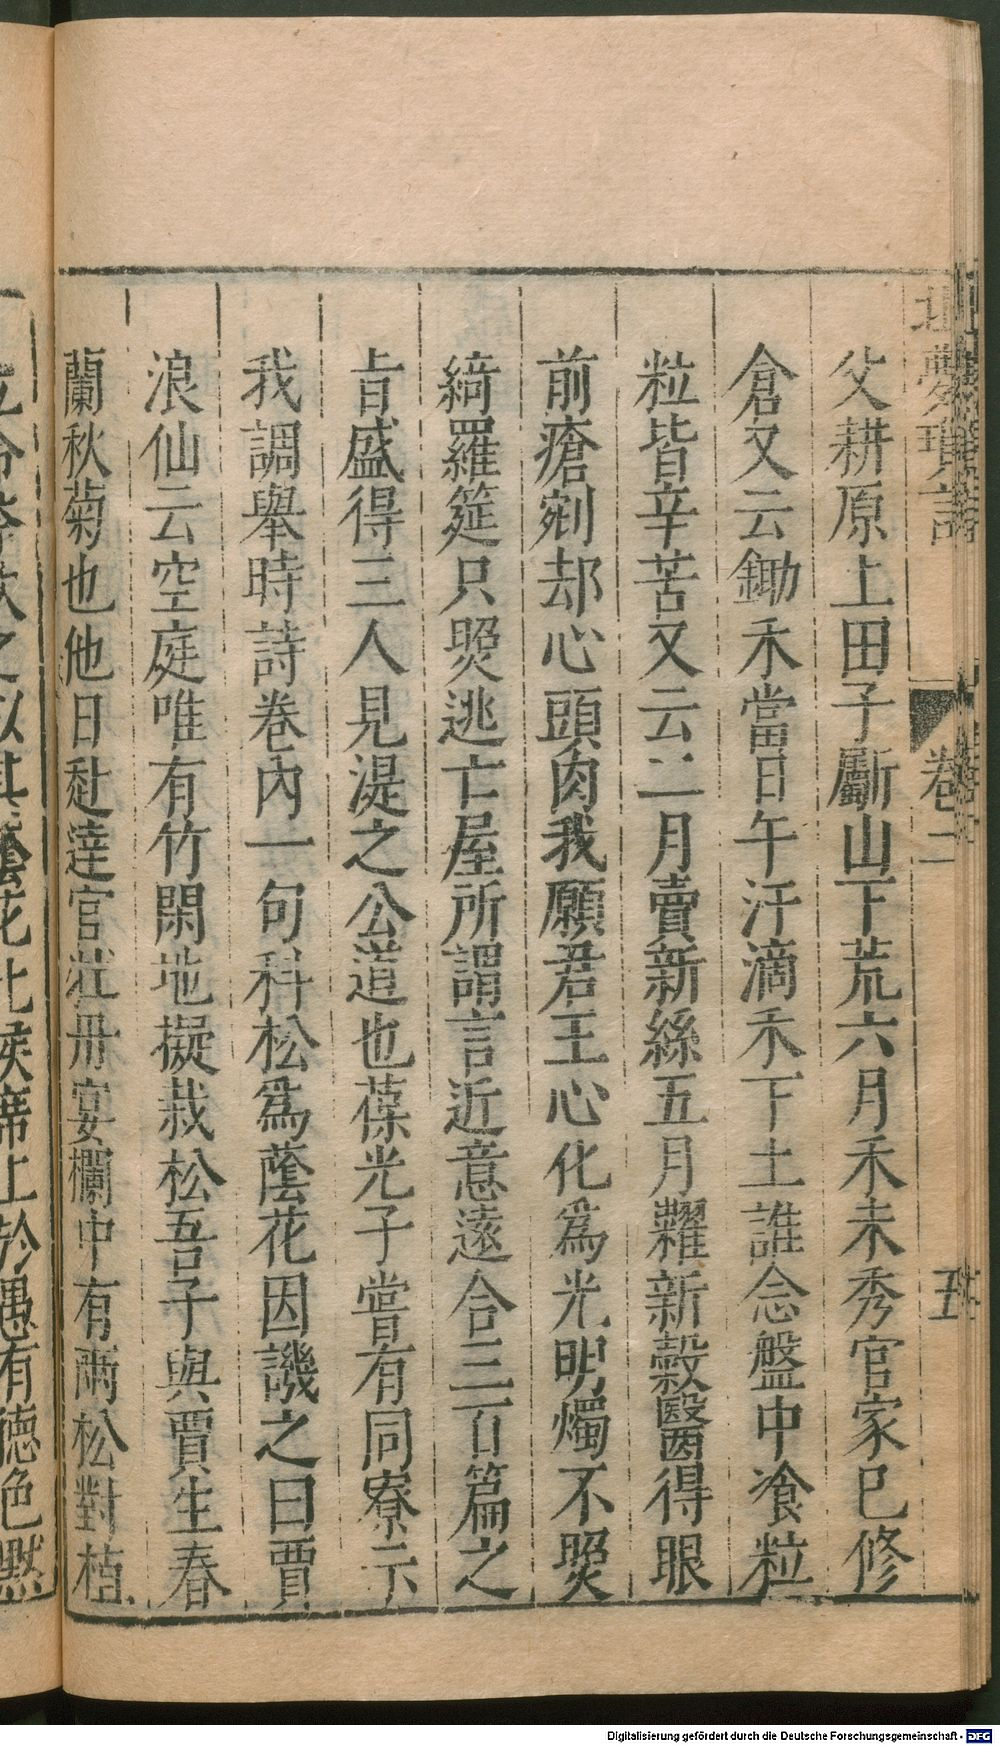 北夢瑣言 卷二 五
父耕原上田子斸山下荒六月禾未秀官家已修
倉又云鋤禾當日午汗滴禾下土誰念盤中飡粒
粒皆辛苦又云二月賣新絲五月糶新穀醫得眼
前瘡剜却心頭肉我願君王心化爲光明燭不照
綺羅筵只照逃亡屋所謂言近意遠合三百篇之
旨盛得三人見湜之公道也葆光子嘗有同寮示
我調舉時詩卷內一句科松爲蔭花因譏之曰賈
浪仙云空庭唯有竹閑地擬栽松吾子與賈生春
蘭秋菊也他日赴達官牡丹宴欄中有兩松對植
Digitalisierung gefördert durch die Deutsche Forschungsgemeinschaft - DFG